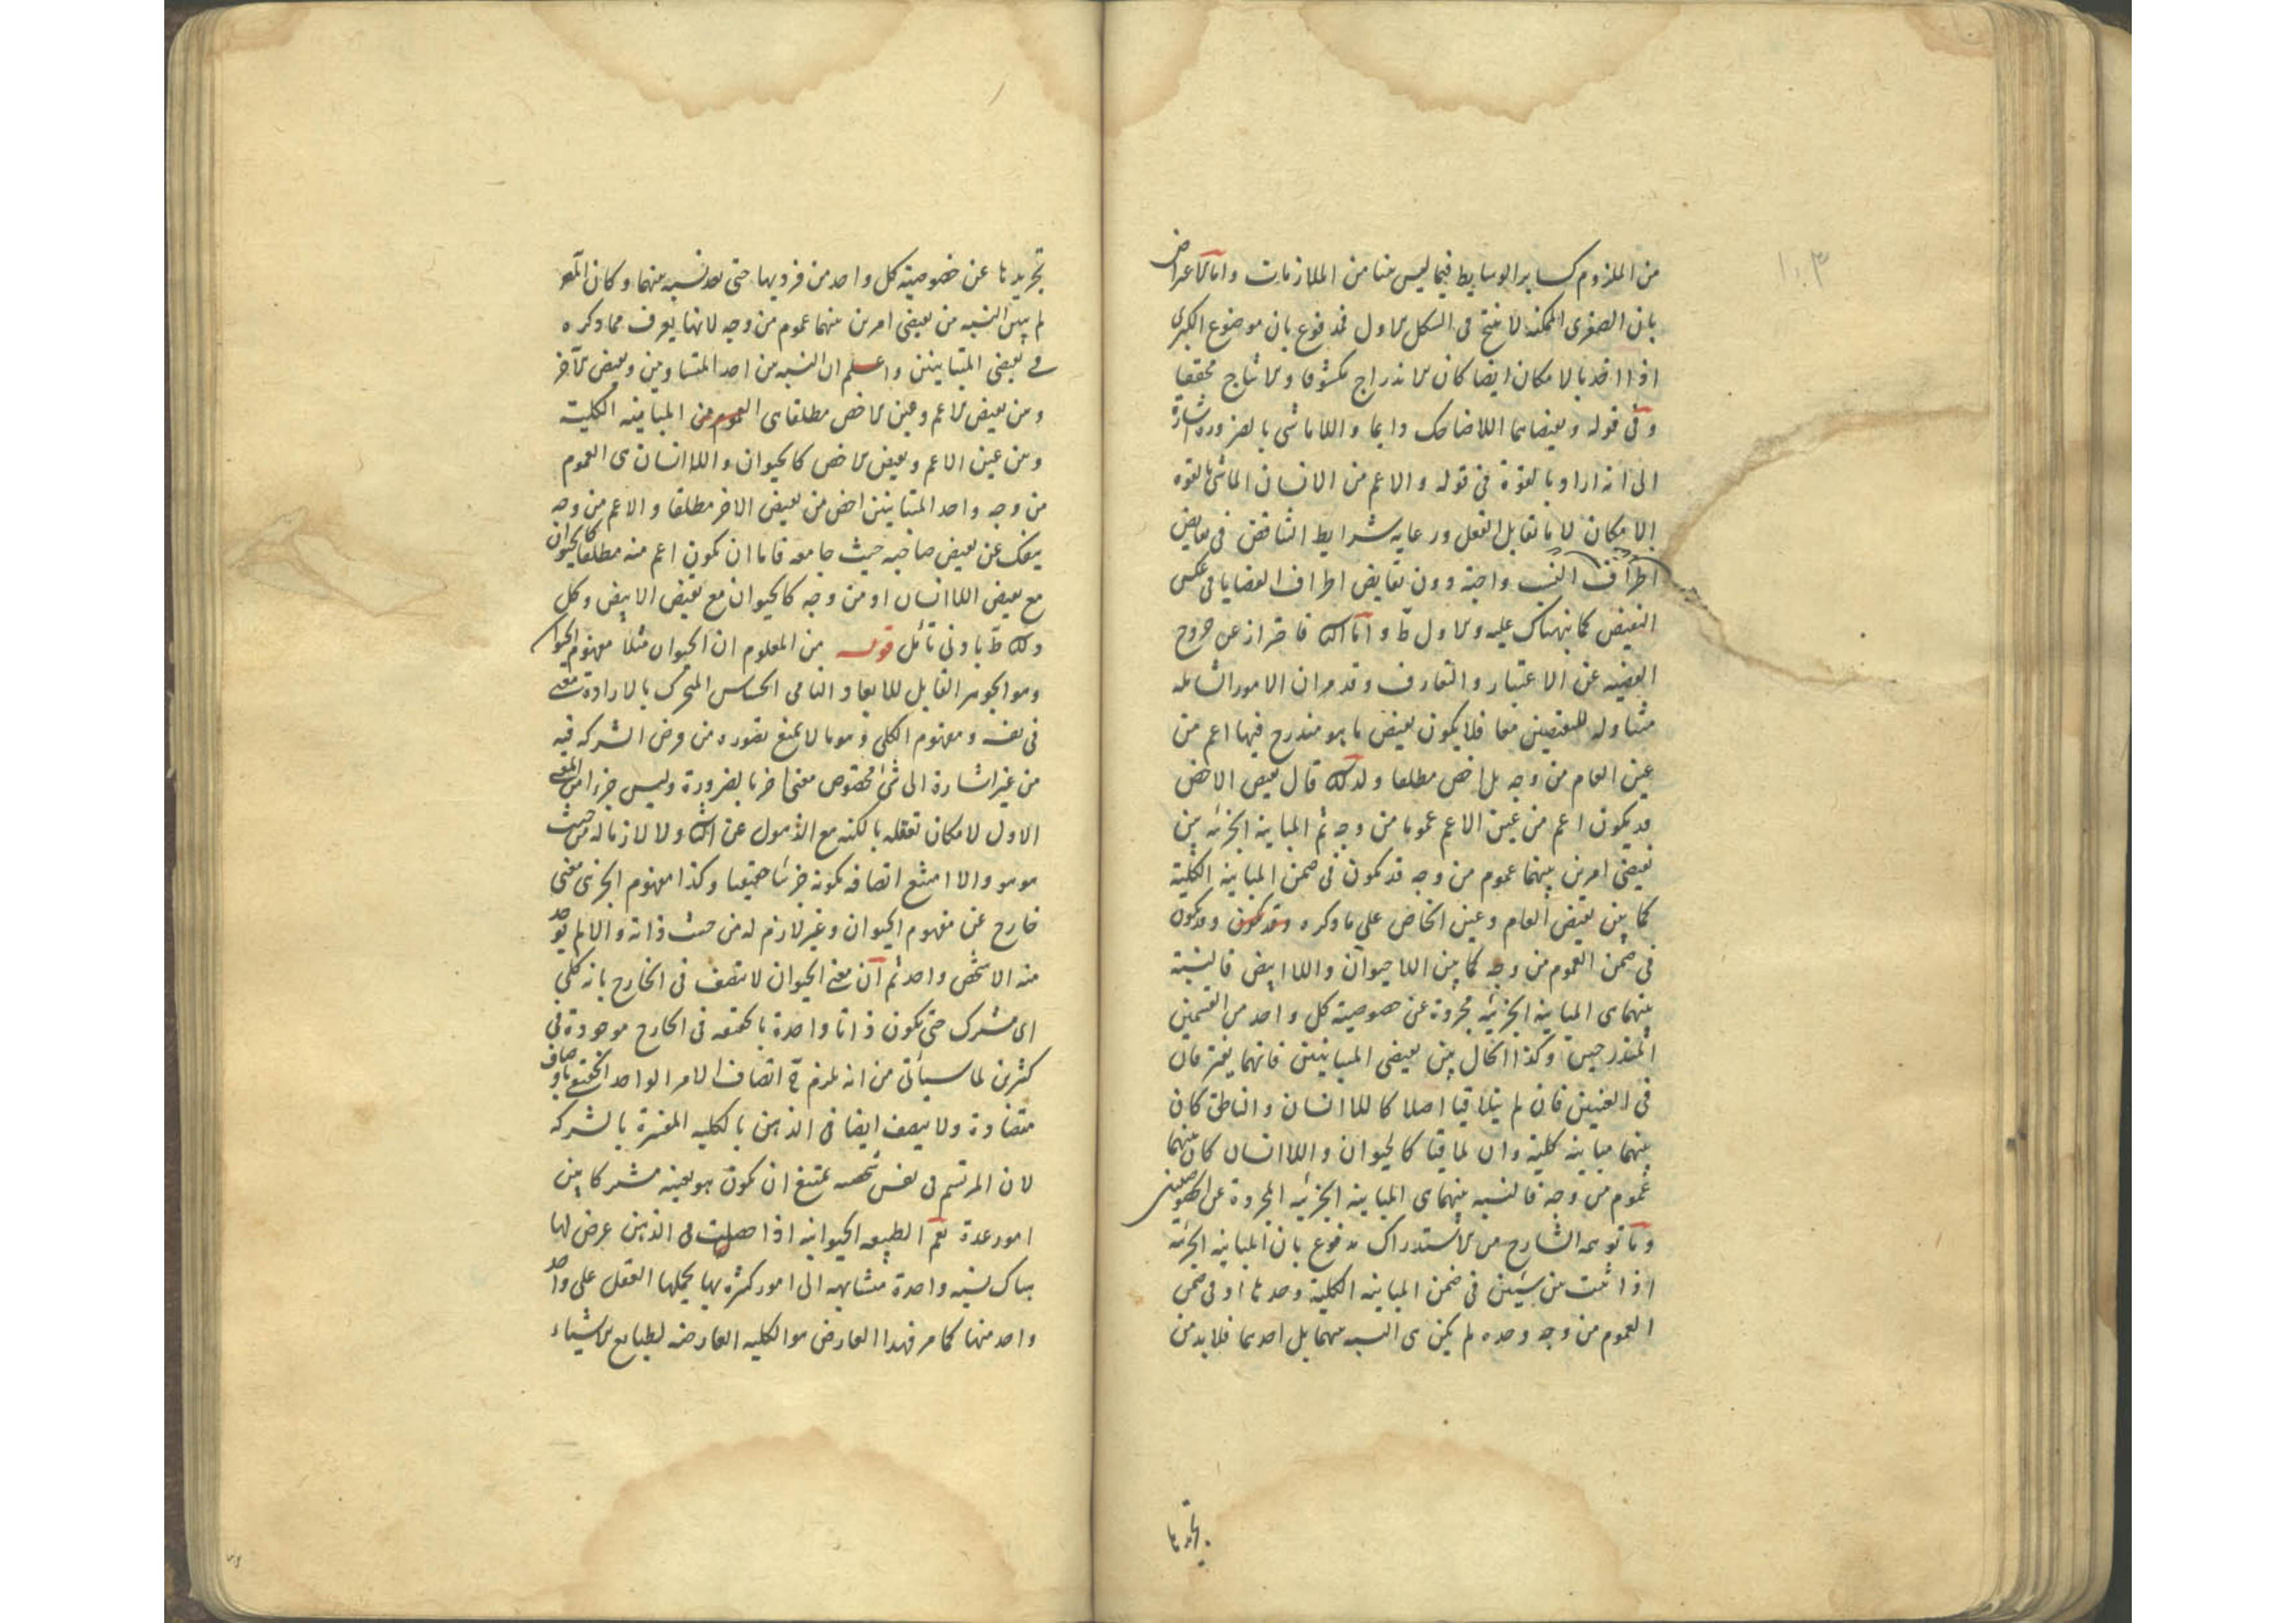 ١٠٣
من الملزوم كساير الوسايط فيما ليس منا من الملازمات واما الاعتراض
بان الصغرى الممكنة لا ينتج فى الشكل الاول فمدفوع بان موضوع الكبرى
اذا اخذ بالامكان ايضا كان الاندراج مكشوفا والانتاج محققا
وفى قوله ونقيضاهما اللاضاحك دايما واللاماشى بالضرورة اشارة
الى انه اراد بالقوة فى قوله والاعم من الانسان الماشى بالقوة
الامكان لا ما تقابل الفعل ورعاية شرايط التناقض فى نقايض
اطراف النسب واجبة دون نقايض اطراف القضايا فى عكس
النقيض كما ينهناك عليه والاول ظ واما الثانى فاحتراز عن خروج
القضية عن الاعتبار والتعارف وقد مر ان الامور الشاملة
متناولة للنقيضين معا فلا يكون نقيض ما هو مندرج فيها اعم من
عين العام من وجه بل اخص مطلقا ولذلك قال نقيض الاخص
قد يكون اعم من عين الاعم عموما من وجه ثم المباينة الجزئية بين
نقيضى امرين بينهما عموم من وجه قد تكون فى ضمن المباينة الكلية
كما بين نقيض العام وعين الخاص على ما ذكره وقد تكون وقد تكون
فى ضمن العموم من وجه كما بين اللاحيوان واللاابيض فالنسبة
بينهما هى المباينة الجزئية مجردة عن خصوصية كل واحد من القسمين
المندرجين وكذا الحال بين نقيضى المتباينين فانهما يفترقان
فى العينين فان لم يتلاقيا اصلا كاللاانسان والناطق كان
بينهما مباينة كلية وان تلاقيا كالحيوان واللاانسان كان بينهما
عموم من وجه فالنسبة بينهما هى المباينة الجزئية المجردة عن الخصوصيتين
وما توهمه الشارح من الاستدراك مدفوع بان المباينة الجزئية
اذا ثبت بين شيئين فى ضمن المباينة الكلية وحدها او فى ضمن
العموم من وجه وحده لم يكن هى النسبة بينهما بل احدهما فلا بد من
تجريدها
تجريدها عن خصوصية كل واحد من فرديها حتى تعد نسبة بينهما وكان المص
لم يبين النسبة من نقيضى امرين بينهما عموم من وجه لانها يعرف مما ذكره
فى نقيضى المتباينين واعلم ان النسبة بين احد المتساويين ونقيض الاخر
ومن نقيض الاعم وعين الاخص مطلقا هى العموم من المباينة الكلية
وبين عين الاعم ونقيض الاخص كالحيوان واللاانسان هى العموم
من وجه واحد المتباينين اخص من نقيض الاخر مطلقا والاعم من وجه
ينفك عن نقيض صاحبه حيث جامعه فاما ان يكون اعم منه مطلقا كالحيوان
مع نقيض اللاانسان او من وجه كالحيوان مع نقيض الابيض وكل
ذلك ظ بادنى تأمل قوله من المعلوم ان الحيوان مثلا مفهوم الحيوان
وهو الجوهر القابل للابعاد النامى الحساس المتحرك بالارادة معنى
فى نفسه ومفهوم الكلى وهو ما لا يمنع تصوره من فرض الشركة فيه
من غير اشارة الى شئ مخصوص معنى اخر بالضرورة وليس جزءا من المعنى
الاول لامكان تعقله بالكنه مع الذهول عن الثانى ولا لازما له من حيث
هو هو والا امتنع اتصافه بكونه جزئيا حقيقيا وكذا مفهوم الجزئى معنى
خارج عن مفهوم الحيوان وغير لازم له من حيث ذاته والا لم يوجد
منه الا شخص واحد ثم ان معنى الحيوان لا يتصف فى الخارج بانه كلى
اى مشترك حتى يكون ذاتا واحدة بالحقيقة فى الخارج موجودة فى
كثيرين لما سيأتى من انه يلزم ح اتصاف الامر الواحد الحقيقى باوصاف
متضادة ولا يتصف ايضا فى الذهن بالكلية المفسرة بالشركة
لان المرتسم فى نفس شخصية يمتنع ان يكون هو بعينه مشتركا بين
امور عدة نعم الطبيعة الحيوانية اذا حصلت فى الذهن عرض لها
هناك نسبة واحدة متشابهة الى امور كثيرة بها يحملها العقل على واحد
واحد منها كما مر فهذا العارض هو الكلية العارضة لطبايع الاشياء